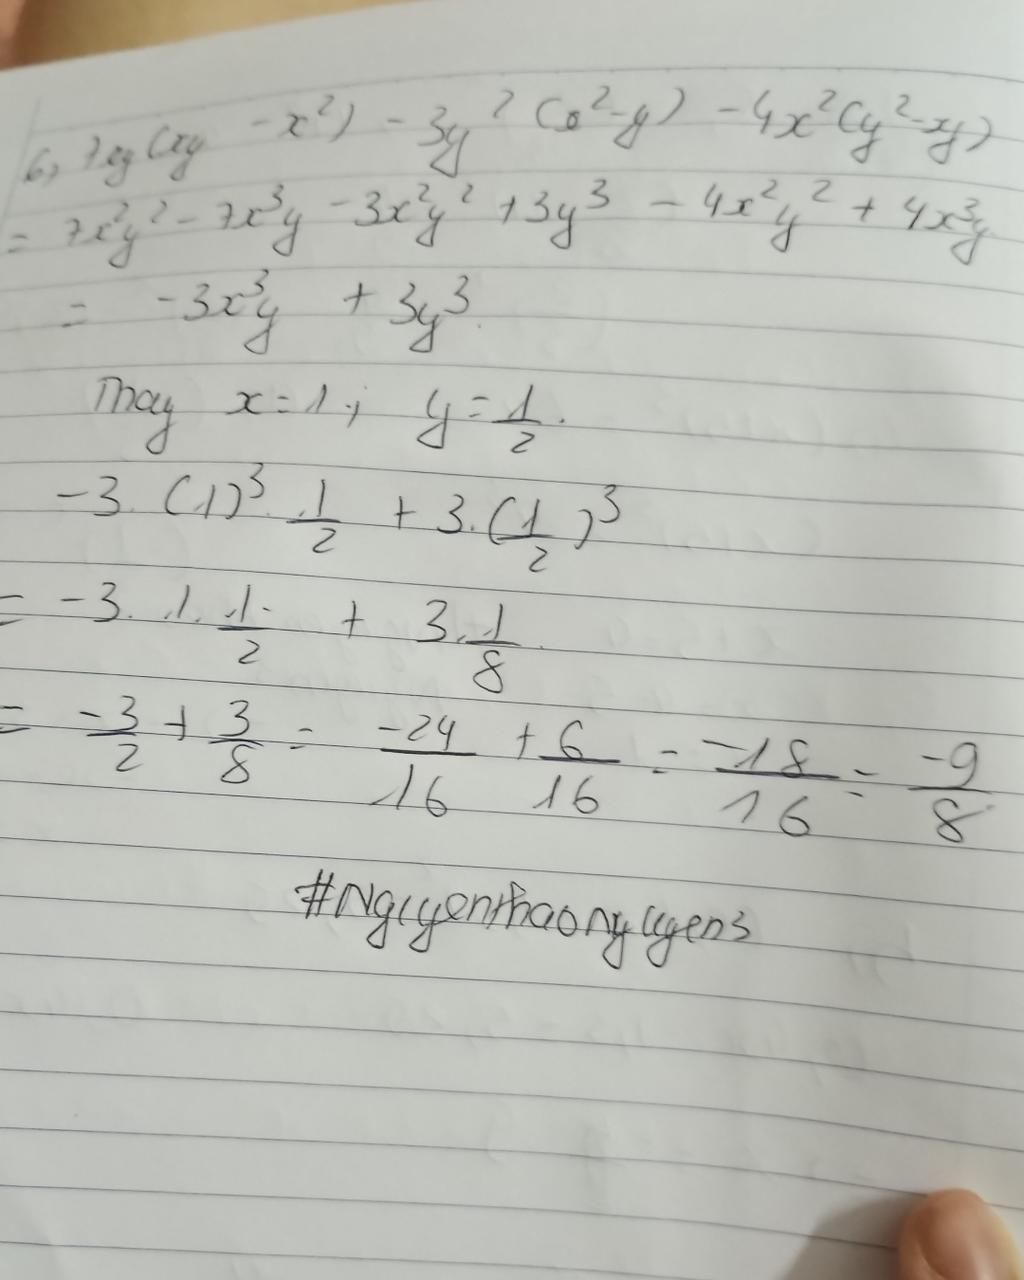 6, 7xy(xy - x²) - 3y²(x²-y) - 4x²(y²-xy)
= 7x²y² - 7x³y - 3x²y² + 3y³ - 4x²y² + 4x³y
= -3x³y + 3y³.
Thay x=1; y=1/2.
-3.(1)³.1/2 + 3.(1/2)³
= -3.1.1/2 + 3.1/8.
= -3/2 + 3/8 = -24/16 + 6/16 = -18/16 = -9/8
#NguyenthaoNguyen3